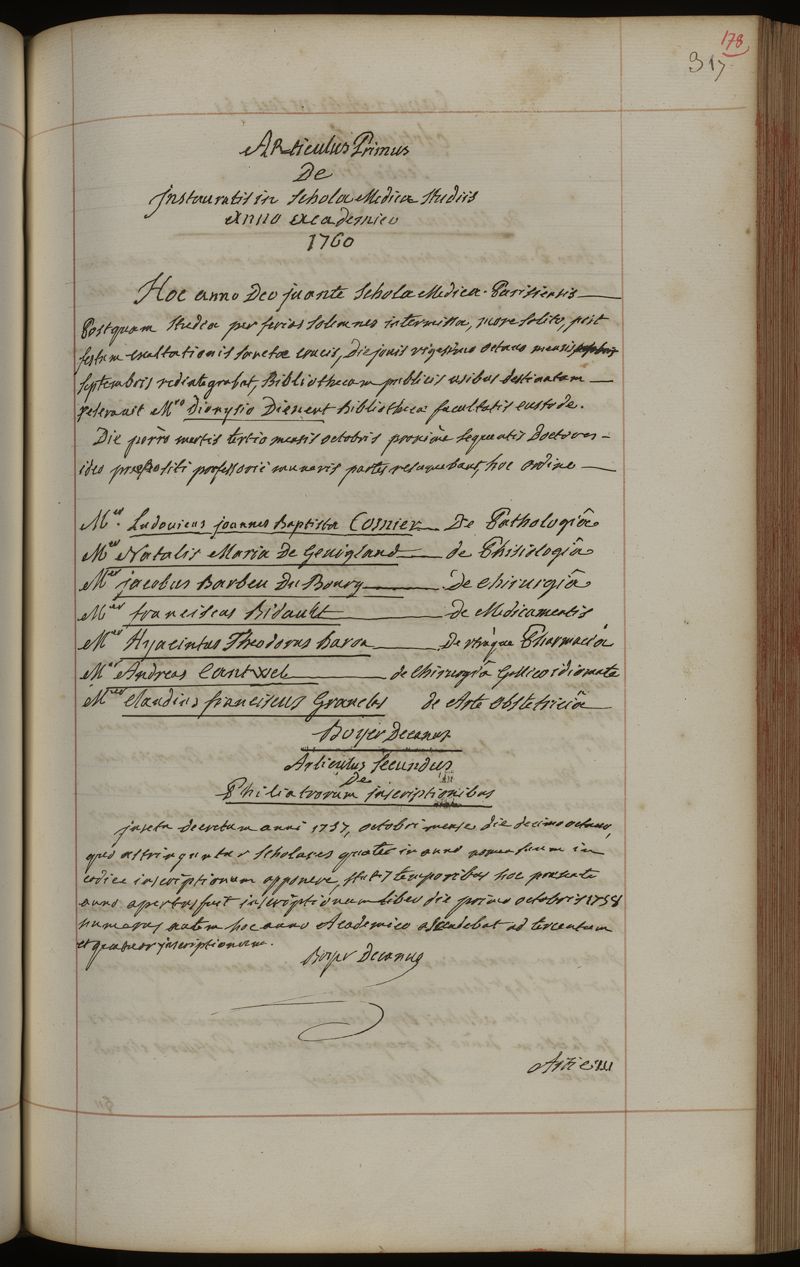 178
317
Articulus Primus
De
Instauratis in Schola Medica Studiis
Anno Academico
1760
Hoc anno Deo juante Schola Medica Parisiensis
Postquam Studia per ferias solemnes intermissa, more solito, post
festum exaltationis sanctae crucis, Die jovis vigesimo octavo mensis
septembris redintegrabat, Bibliothecam publicis usibus destinatam
reseravit Mro Dionysio Dienert Bibliothecae facultatis custode.
Die porro martis tertio mensis octobris proxime sequentis Doctores
ideo praepositi professorii muneris partes resumebant, hoc ordine
Mer. Ludovicus joannes Baptista Cosnier De Pathologiâ
Mer Natalis Maria De Gevigland de Phisiologiâ
Mer jacobus Barbeu Du Bourg De chirurgiâ
Mer franciscus Bidault De Medicamentis
Mer Hyacintus Theodorus Baron De utrâque Pharmaciâ
Mer Andreas Cantwel de Chirurgiâ Gallico idiomate
Mer Claudius franciscus Granclas de Arte obstetriciâ
Boyer Decanus
Articulus Secundus
De
Philiatrorum inscriptionibus
juxta Decretum anni 1757, octobri mense die decimo octavo,
quo astringuntur Scholares quater in anno nomen suum in
codice inscriptionum apponere, statis temporibus hoc praesente
anno apertus fuit inscriptionum liber die primo octobris 1758
numerus autem hoc anno Academico ascendebat ad tercentum
et quatuor inscriptionum.
Boyer Decanus
Artic III